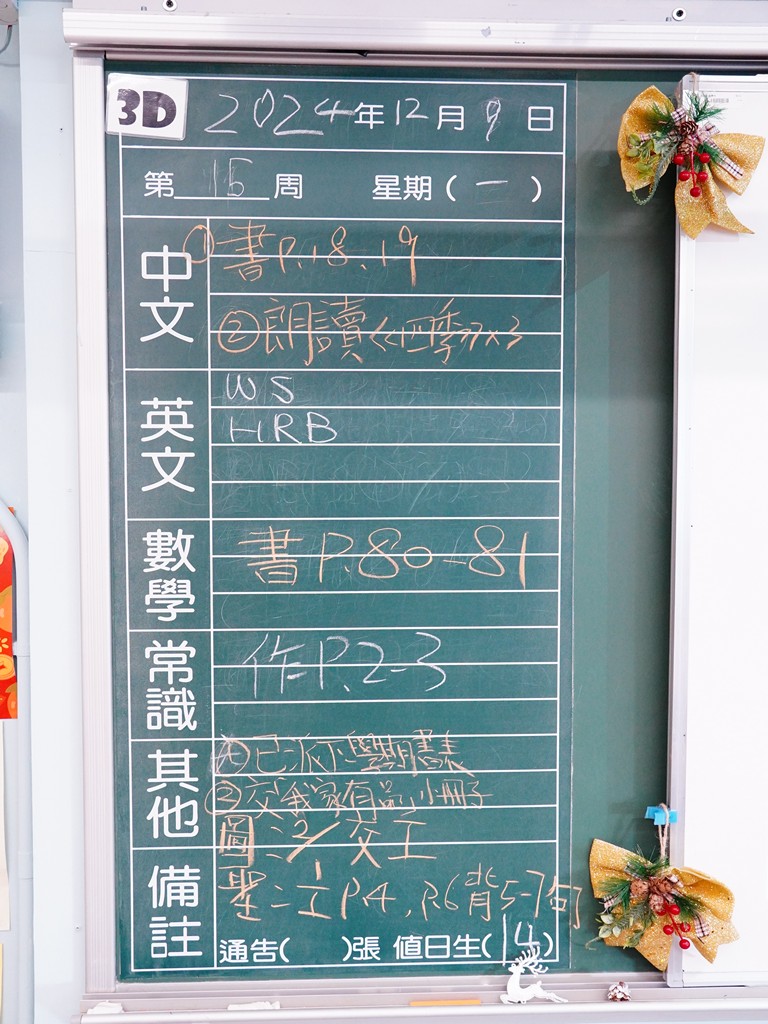 3D
2024年12月9日
第 15 周 星期(一)
中文
①書P.18、19
②朗讀《四季》x3
英文
WS
HRB
數學
書P.80-81
常識
作P.2-3
其他
①已派下學期書表
②交我家有品小冊子
圖:2/ 交工
備註
聖:工P.4、P.6背5-7句
通告( )張 值日生(14)